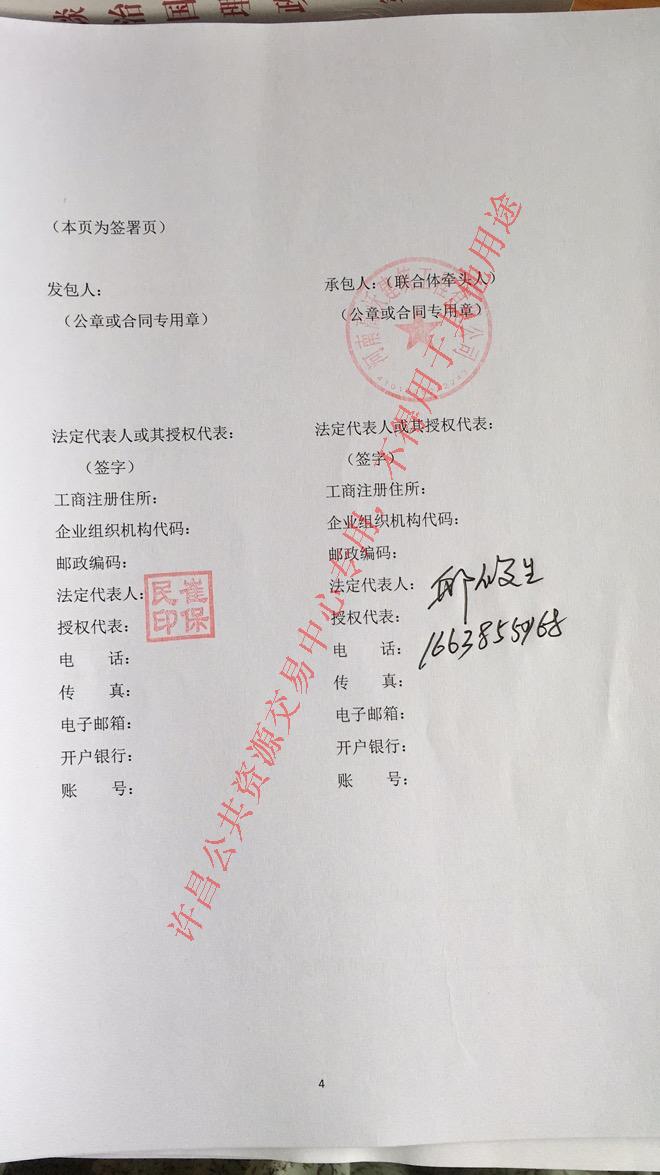 谈治国理政
（本页为签署页）
发包人：
（公章或合同专用章）
法定代表人或其授权代表：
（签字）
工商注册住所：
企业组织机构代码：
邮政编码：
法定代表人：
崔保民印
授权代表：
电 话：
传 真：
电子邮箱：
开户银行：
账 号：
承包人：（联合体牵头人）
（公章或合同专用章）
法定代表人或其授权代表：
（签字）
工商注册住所：
企业组织机构代码：
邮政编码：
法定代表人：
授权代表：
电 话：
传 真：
电子邮箱：
开户银行：
账 号：
许昌公共资源交易中心专用，不得用于其他用途
4